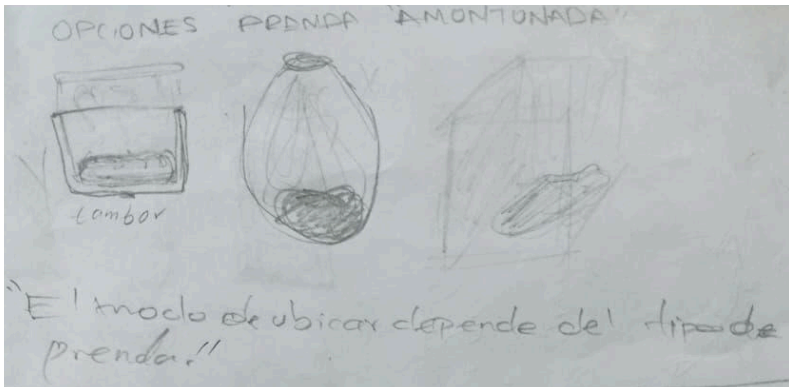 OPCIONES PRENDA "AMONTONADA"
tambor
"El modo de ubicar depende del tipo de
prenda."